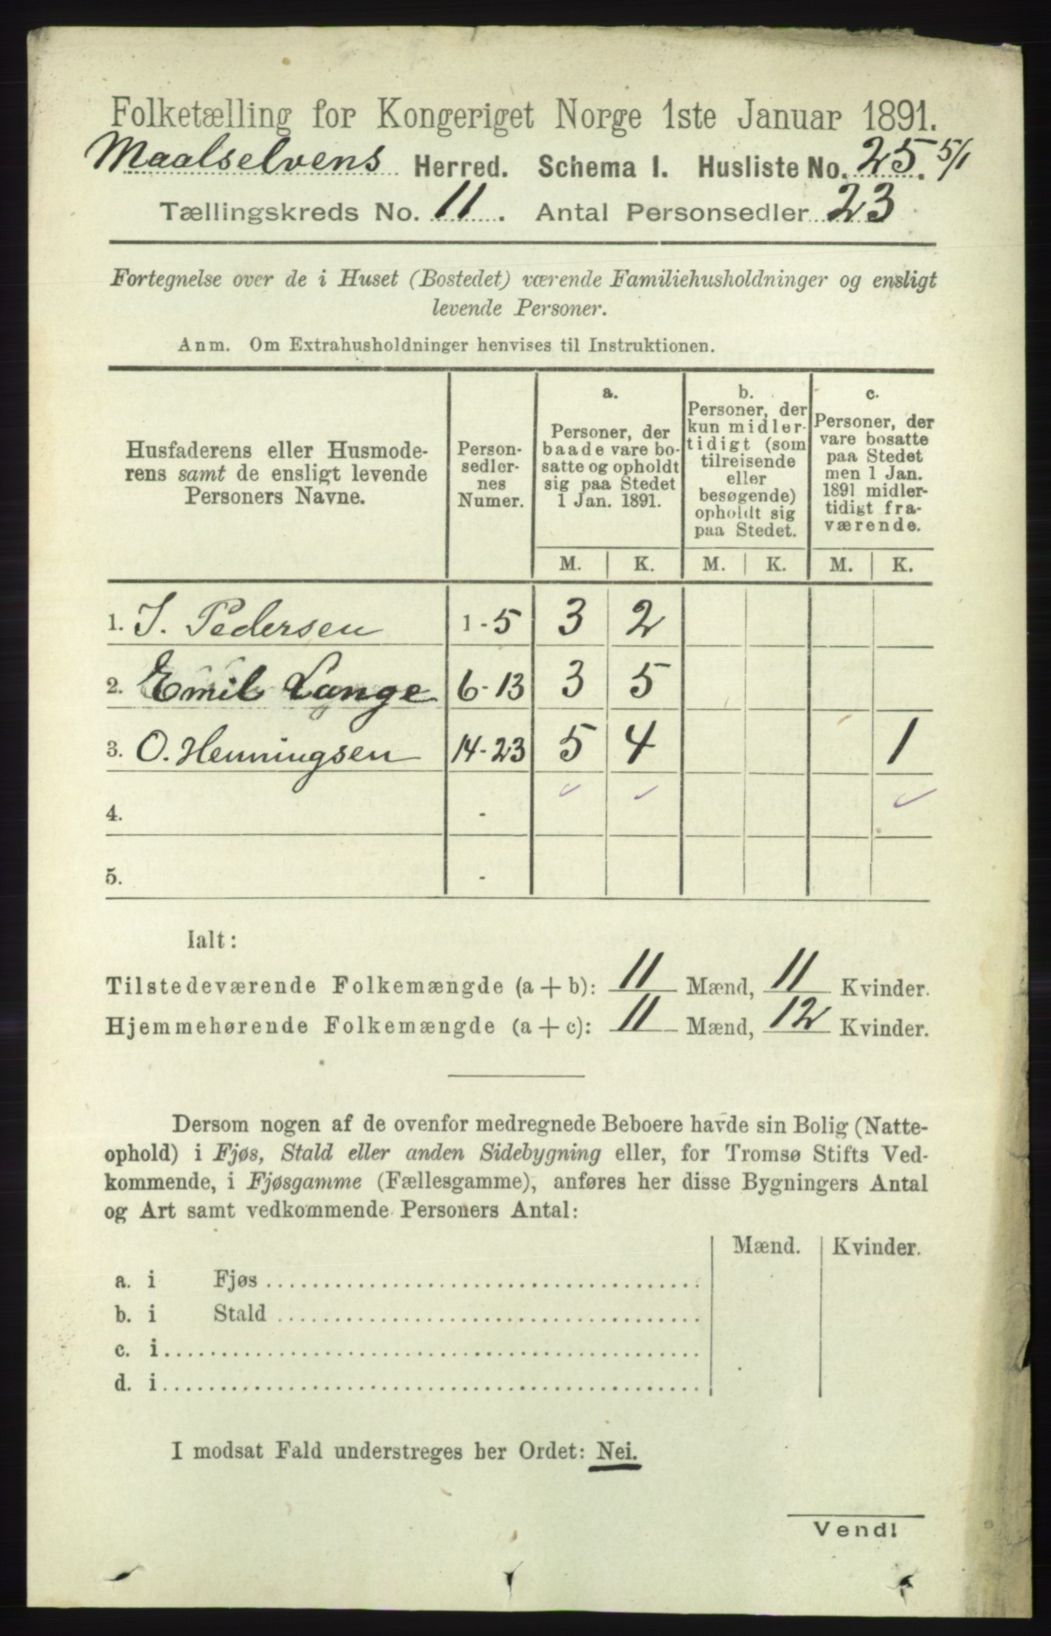 Folketælling for Kongeriget Norge 1ste Januar 1891.
Maalselvens Herred. Schema I. Husliste No. 25. 5/1
Tællingskreds No. 11. Antal Personsedler 23
Fortegnelse over de i Huset (Bostedet) værende Familiehusholdninger og ensligt
levende Personer.
Anm. Om Extrahusholdninger henvises til Instruktionen.
Husfaderens eller Husmode-
rens samt de ensligt levende
Personers Navne.
Person-
sedler-
nes
Numer.
a.
Personer, der
baade vare bo-
satte og opholdt
sig paa Stedet
1 Jan. 1891.
b.
Personer, der
kun midler-
tidigt (som
tilreisende
eller
besøgende)
opholdt sig
paa Stedet.
c.
Personer, der
vare bosatte
paa Stedet
men 1 Jan.
1891 midler-
tidigt fra-
værende.
M. K. M. K. M. K.
1. I. Pedersen 1-5 3 2
2. Emil Lange 6-13 3 5
3. O. Henningsen 14-23 5 4 1
4. -
5. -
Ialt:
Tilstedeværende Folkemængde (a+b): 11 Mænd, 11 Kvinder.
Hjemmehørende Folkemængde (a+c): 11 Mænd, 12 Kvinder.
Dersom nogen af de ovenfor medregnede Beboere havde sin Bolig (Natte-
ophold) i Fjøs, Stald eller anden Sidebygning eller, for Tromsø Stifts Ved-
kommende, i Fjøsgamme (Fællesgamme), anføres her disse Bygningers Antal
og Art samt vedkommende Personers Antal:
Mænd. Kvinder.
a. i Fjøs
b. i Stald
c. i
d. i
I modsat Fald understreges her Ordet: Nei.
Vend!